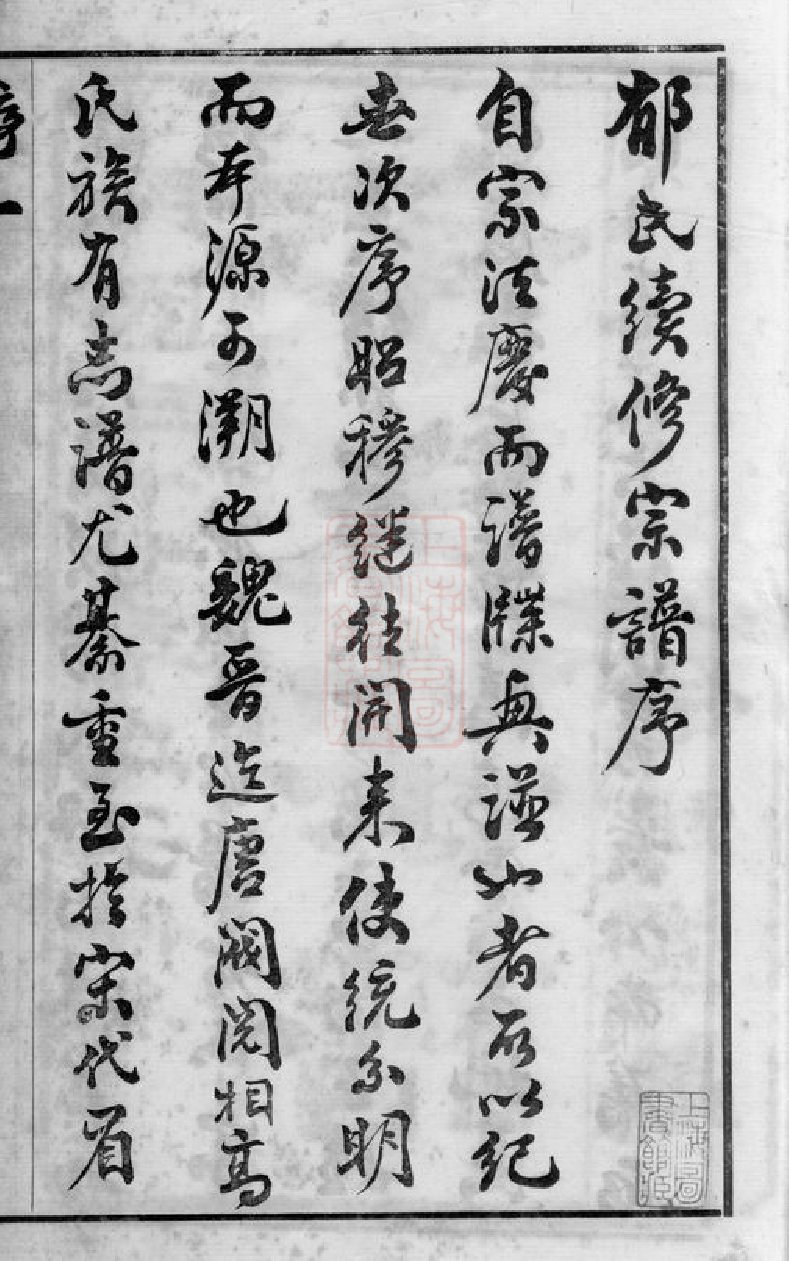 郁氏續修宗譜序
自宗法廢而譜牒興譜也者所以紀
世次序昭穆繼往開來使統系明
而本源可溯也魏晉迄唐閥閱相高
氏族有志譜尤綦重至於宋代眉
序 一
上海圖書館藏
上海圖書館藏